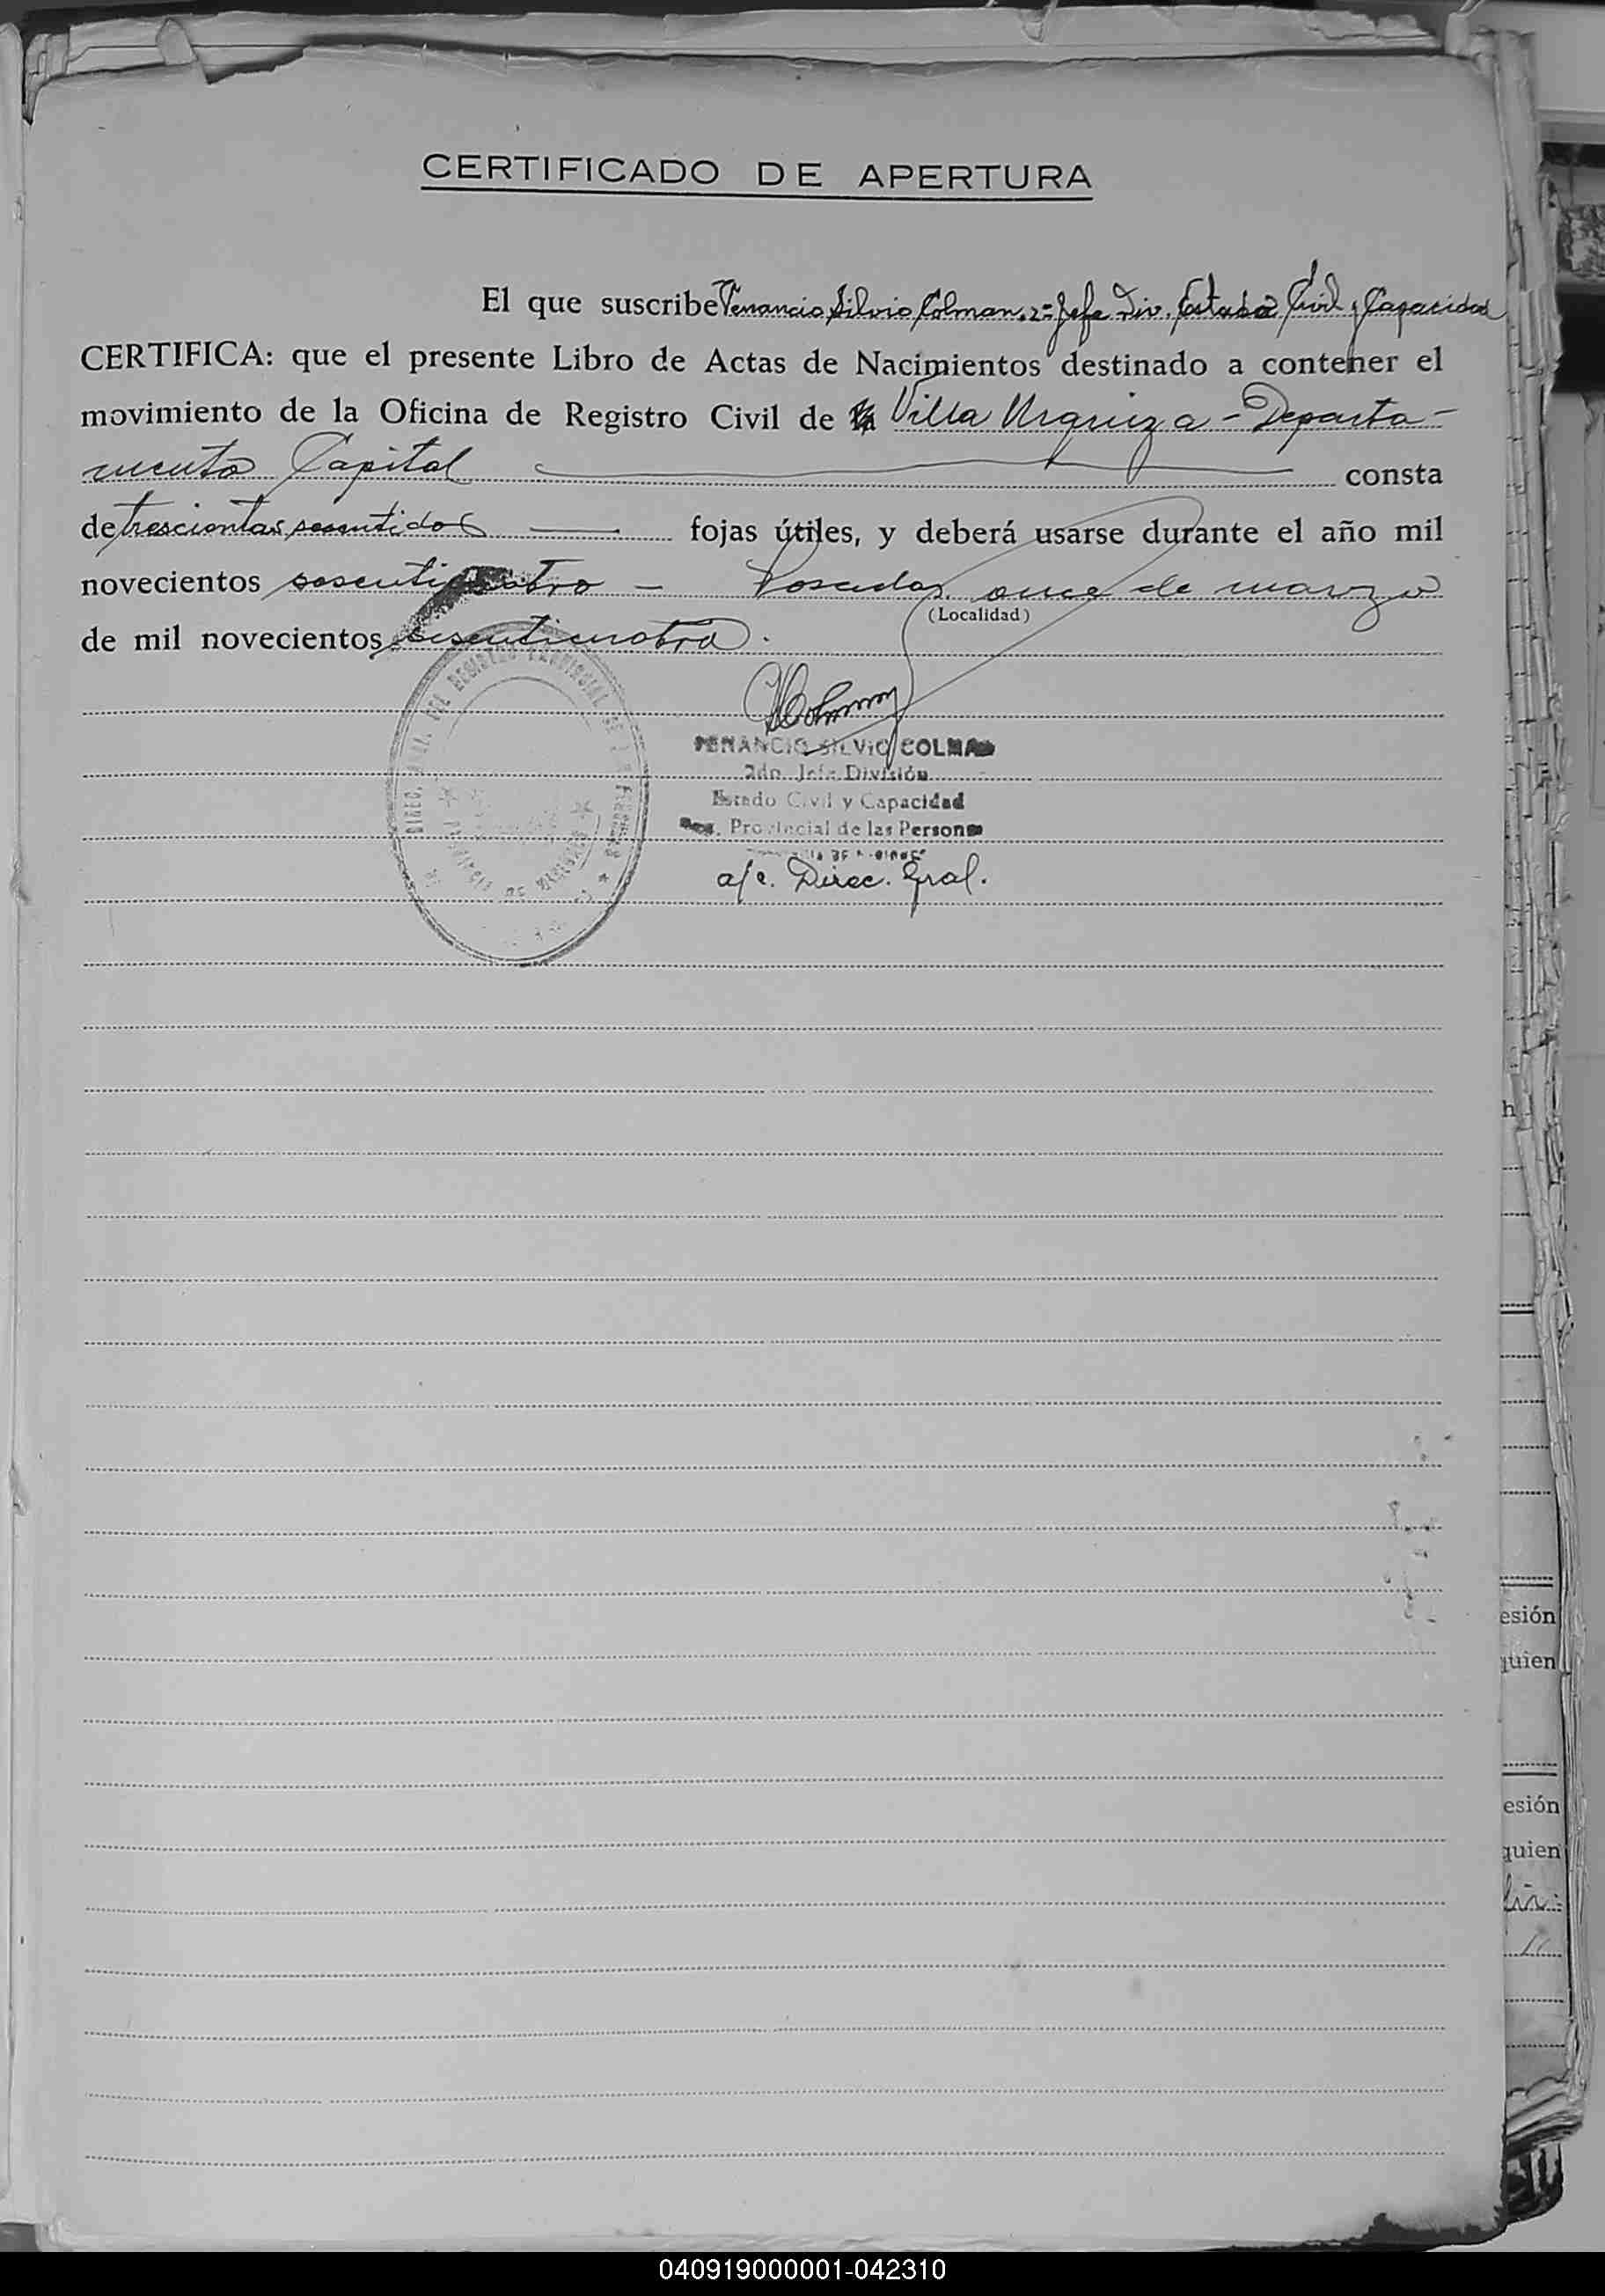 CERTIFICADO DE APERTURA
El que suscribe Venancio Silvio Colman, 2º Jefe Div. Estado Civil y Capacidad
CERTIFICA: que el presente Libro de Actas de Nacimientos destinado a contener el
movimiento de la Oficina de Registro Civil de Villa Urquiza - Departa-
mento Capital consta
de trescientas sesentidos fojas útiles, y deberá usarse durante el año mil
novecientos sesenticuatro - Posadas, once de marzo
(Localidad)
de mil novecientos sesenticuatro.
Colman
VENANCIO SILVIO COLMAN
2do. Jefe División
Estado Civil y Capacidad
Provincial de las Personas
a/c. Direc. Gral.
DIREC. GRAL. DEL REGISTRO PROVINCIAL DE LAS PERSONAS
PROVINCIA DE MISIONES
h
esión
quien
esión
quien
040919000001-042310